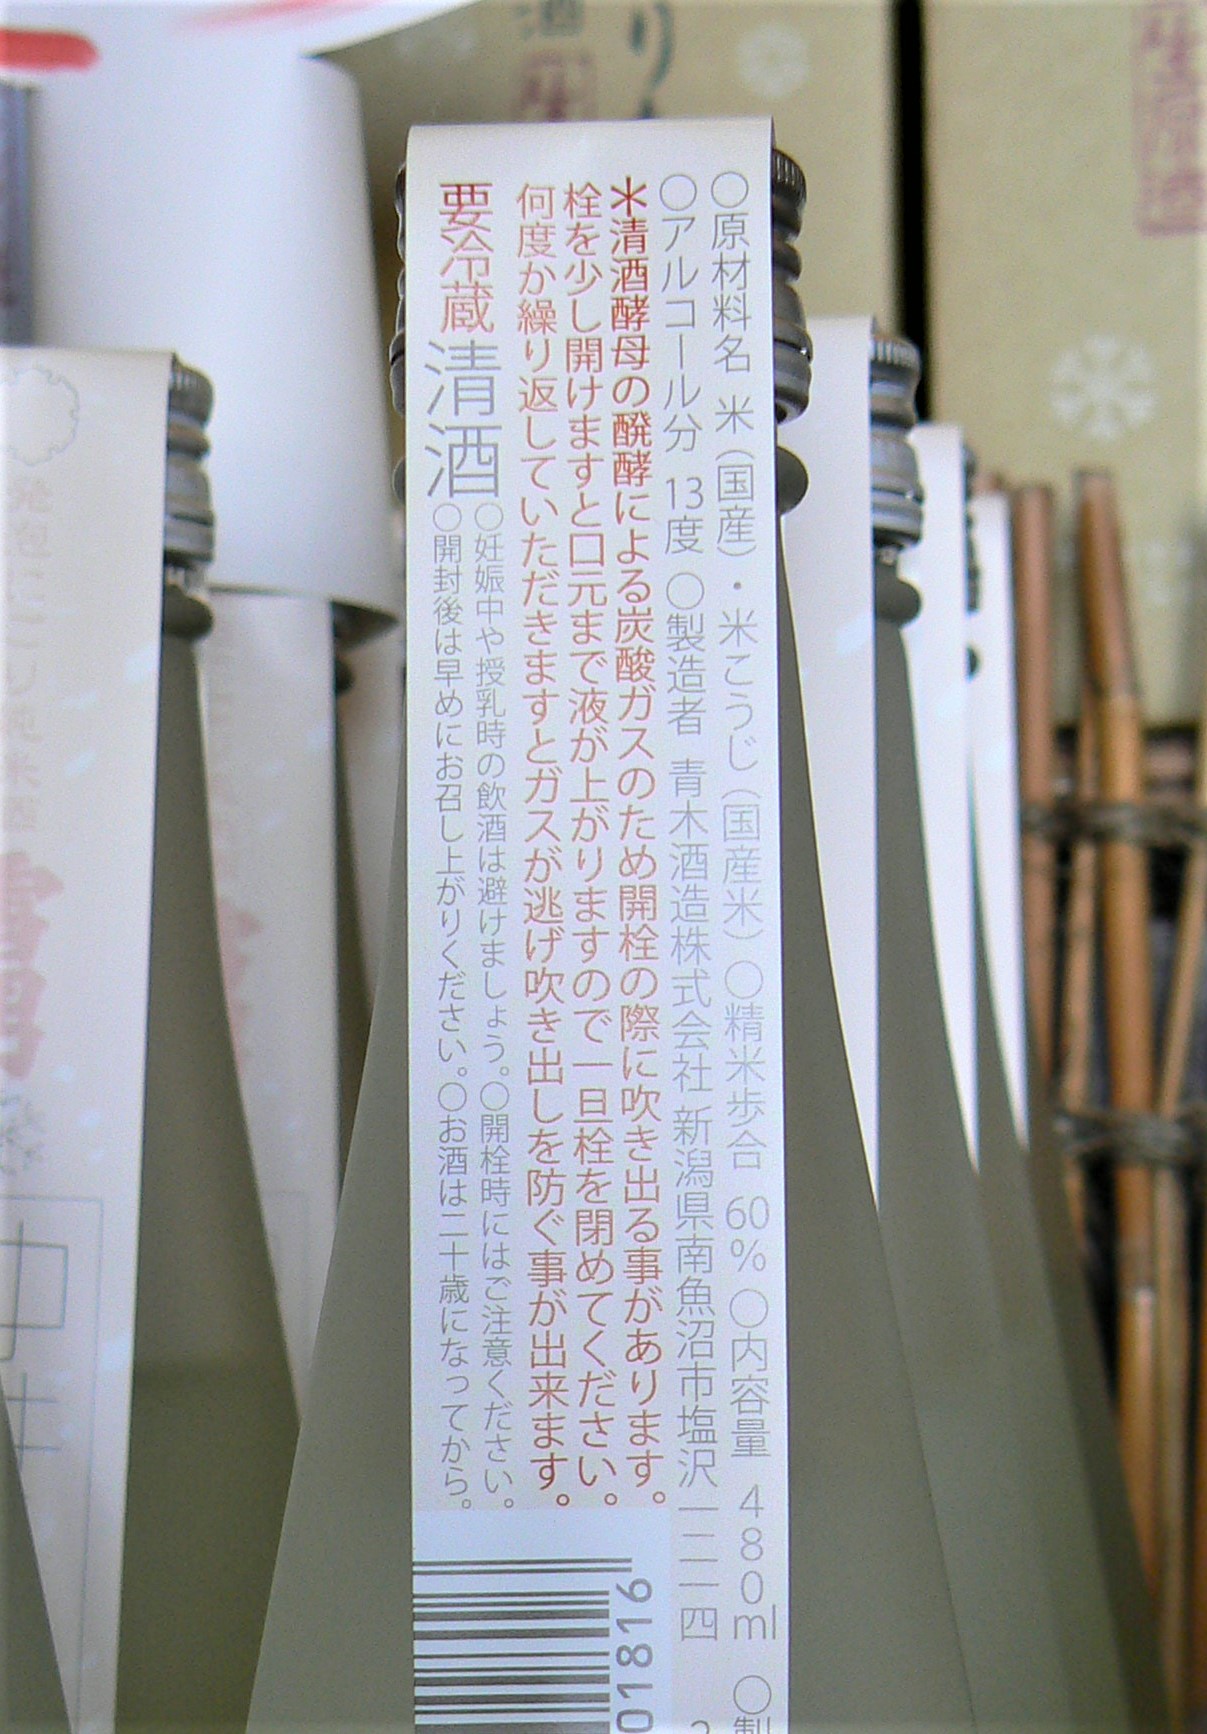 ○原材料名 米(国産)・米こうじ(国産米)○精米歩合 60% ○内容量 480ml ○製
○アルコール分 13度 ○製造者 青木酒造株式会社 新潟県南魚沼市塩沢一二一四
*清酒酵母の醗酵による炭酸ガスのため開栓の際に吹き出る事があります。
栓を少し開けますと口元まで液が上がりますので一旦栓を閉めてください。
何度か繰り返していただきますとガスが逃げ吹き出しを防ぐ事が出来ます。
要冷蔵 清酒
○妊娠中や授乳時の飲酒は避けましょう。○開栓時にはご注意ください。
○開封後は早めにお召し上がりください。○お酒は二十歳になってから。
01816